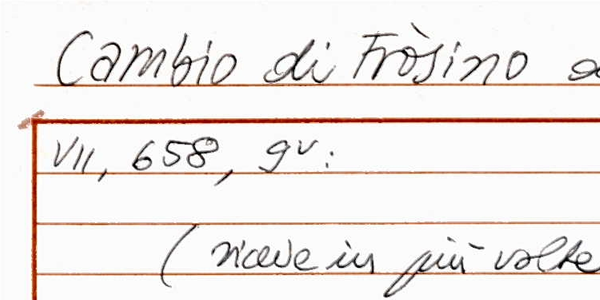 Cambio di Fròsino
VII, 658, 9v:
( riceve in più volte